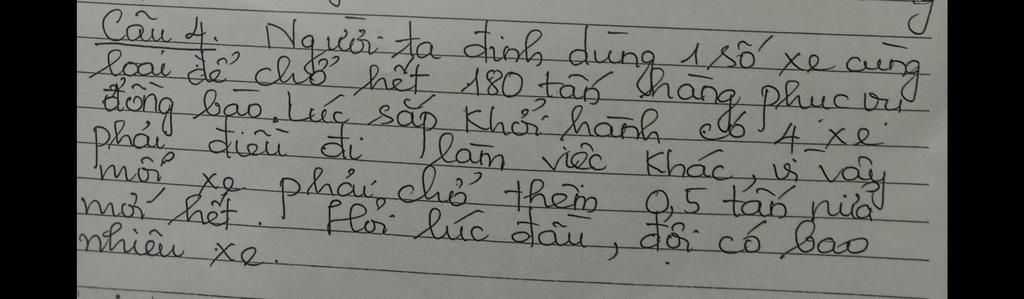 Câu 4. Người ta định dùng 1 số xe cùng
loại để chở hết 180 tấn hàng phục vụ
đồng bào. Lúc sắp khởi hành có 4 xe
phải điều đi làm việc khác, vì vậy
mỗi xe phải chở thêm 0,5 tấn nữa
mới hết. Hỏi lúc đầu, đội có bao
nhiêu xe.